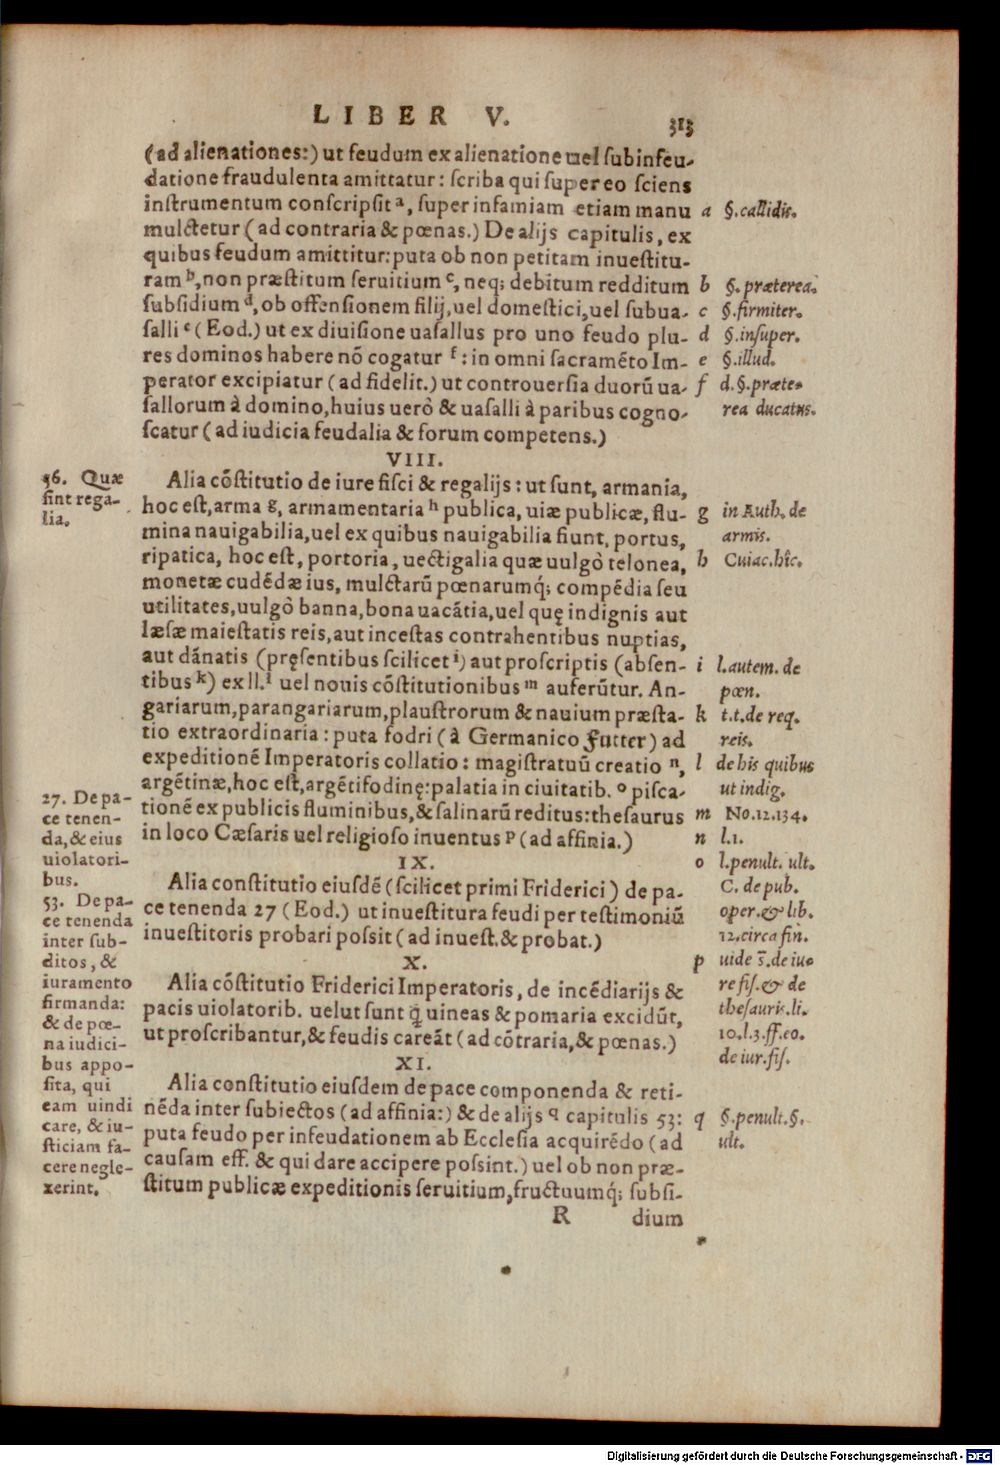 LIBER V. 313
(ad alienationes:) ut feudum ex alienatione uel subinfeu-
datione fraudulenta amittatur: scriba qui super eo sciens
instrumentum conscripsit a, super infamiam etiam manu
mulctetur (ad contraria & pœnas.) De alijs capitulis, ex
quibus feudum amittitur: puta ob non petitam inuestitu-
ram b, non præstitum seruitium c, neq; debitum redditum
subsidium d, ob offensionem filij, uel domestici, uel subua-
salli e (Eod.) ut ex diuisione uasallus pro uno feudo plu-
res dominos habere nõ cogatur f: in omni sacramẽto Im-
perator excipiatur (ad fidelit.) ut controuersia duorũ ua-
sallorum à domino, huius uerò & uasalli à paribus cogno-
scatur (ad iudicia feudalia & forum competens.)
a §. callidis.
b §. præterea.
c §. firmiter.
d §. insuper.
e §. illud.
f d. §. præte-
rea ducatus.
VIII.
Alia cõstitutio de iure fisci & regalijs: ut sunt, armania,
hoc est, arma g, armamentaria h publica, uiæ publicæ, flu-
mina nauigabilia, uel ex quibus nauigabilia fiunt, portus,
ripatica, hoc est, portoria, uectigalia quæ uulgò telonea,
monetæ cudẽdæ ius, mulctarũ pœnarumq́; compẽdia seu
utilitates, uulgò banna, bona uacãtia, uel quę indignis aut
læsæ maiestatis reis, aut incestas contrahentibus nuptias,
aut dãnatis (pręsentibus scilicet i) aut proscriptis (absen-
tibus k) ex ll. l uel nouis cõstitutionibus m auferũtur. An-
gariarum, parangariarum, plaustrorum & nauium præsta-
tio extraordinaria: puta fodri (à Germanico Futter) ad
expeditionẽ Imperatoris collatio: magistratuũ creatio n,
argẽtinæ, hoc est, argẽtifodinę: palatia in ciuitatib. o pisca-
tionẽ ex publicis fluminibus, & salinarũ reditus: thesaurus
in loco Cæsaris uel religioso inuentus p (ad affinia.)
56. Quæ
sint rega-
lia.
g in Auth. de
armis.
h Cuiac. hîc.
i l. autem. de
pœn.
k t.t. de req.
reis.
l de his quibus
ut indig.
m No. 12. 134.
n l. 1.
o l. penult. ult.
C. de pub.
oper. & lib.
12. circa fin.
p uide s̃. de iu-
re fis. & de
thesauris. li.
10. l. 3. ff. eo.
de iur. fis.
IX.
Alia constitutio eiusdẽ (scilicet primi Friderici) de pa-
ce tenenda 27 (Eod.) ut inuestitura feudi per testimoniũ
inuestitoris probari possit (ad inuest. & probat.)
27. De pa-
ce tenen-
da, & eius
uiolatori-
bus.
X.
Alia cõstitutio Friderici Imperatoris, de incẽdiarijs &
pacis uiolatorib. uelut sunt q̃ uineas & pomaria excidũt,
ut proscribantur, & feudis careãt (ad cõtraria, & pœnas.)
XI.
Alia constitutio eiusdem de pace componenda & reti-
nẽda inter subiectos (ad affinia:) & de alijs q capitulis 53:
puta feudo per infeudationem ab Ecclesia acquirẽdo (ad
causam eff. & qui dare accipere possint.) uel ob non præ-
stitum publicæ expeditionis seruitium, fructuumq́; subsi-
53. De pa-
ce tenenda
inter sub-
ditos, &
iuramento
firmanda:
& de pœ-
na iudici-
bus appo-
sita, qui
eam uindi
care, & iu-
sticiam fa-
cere negle-
xerint.
q §. penult. §.
ult.
R dium
Digitalisierung gefördert durch die Deutsche Forschungsgemeinschaft - DFG